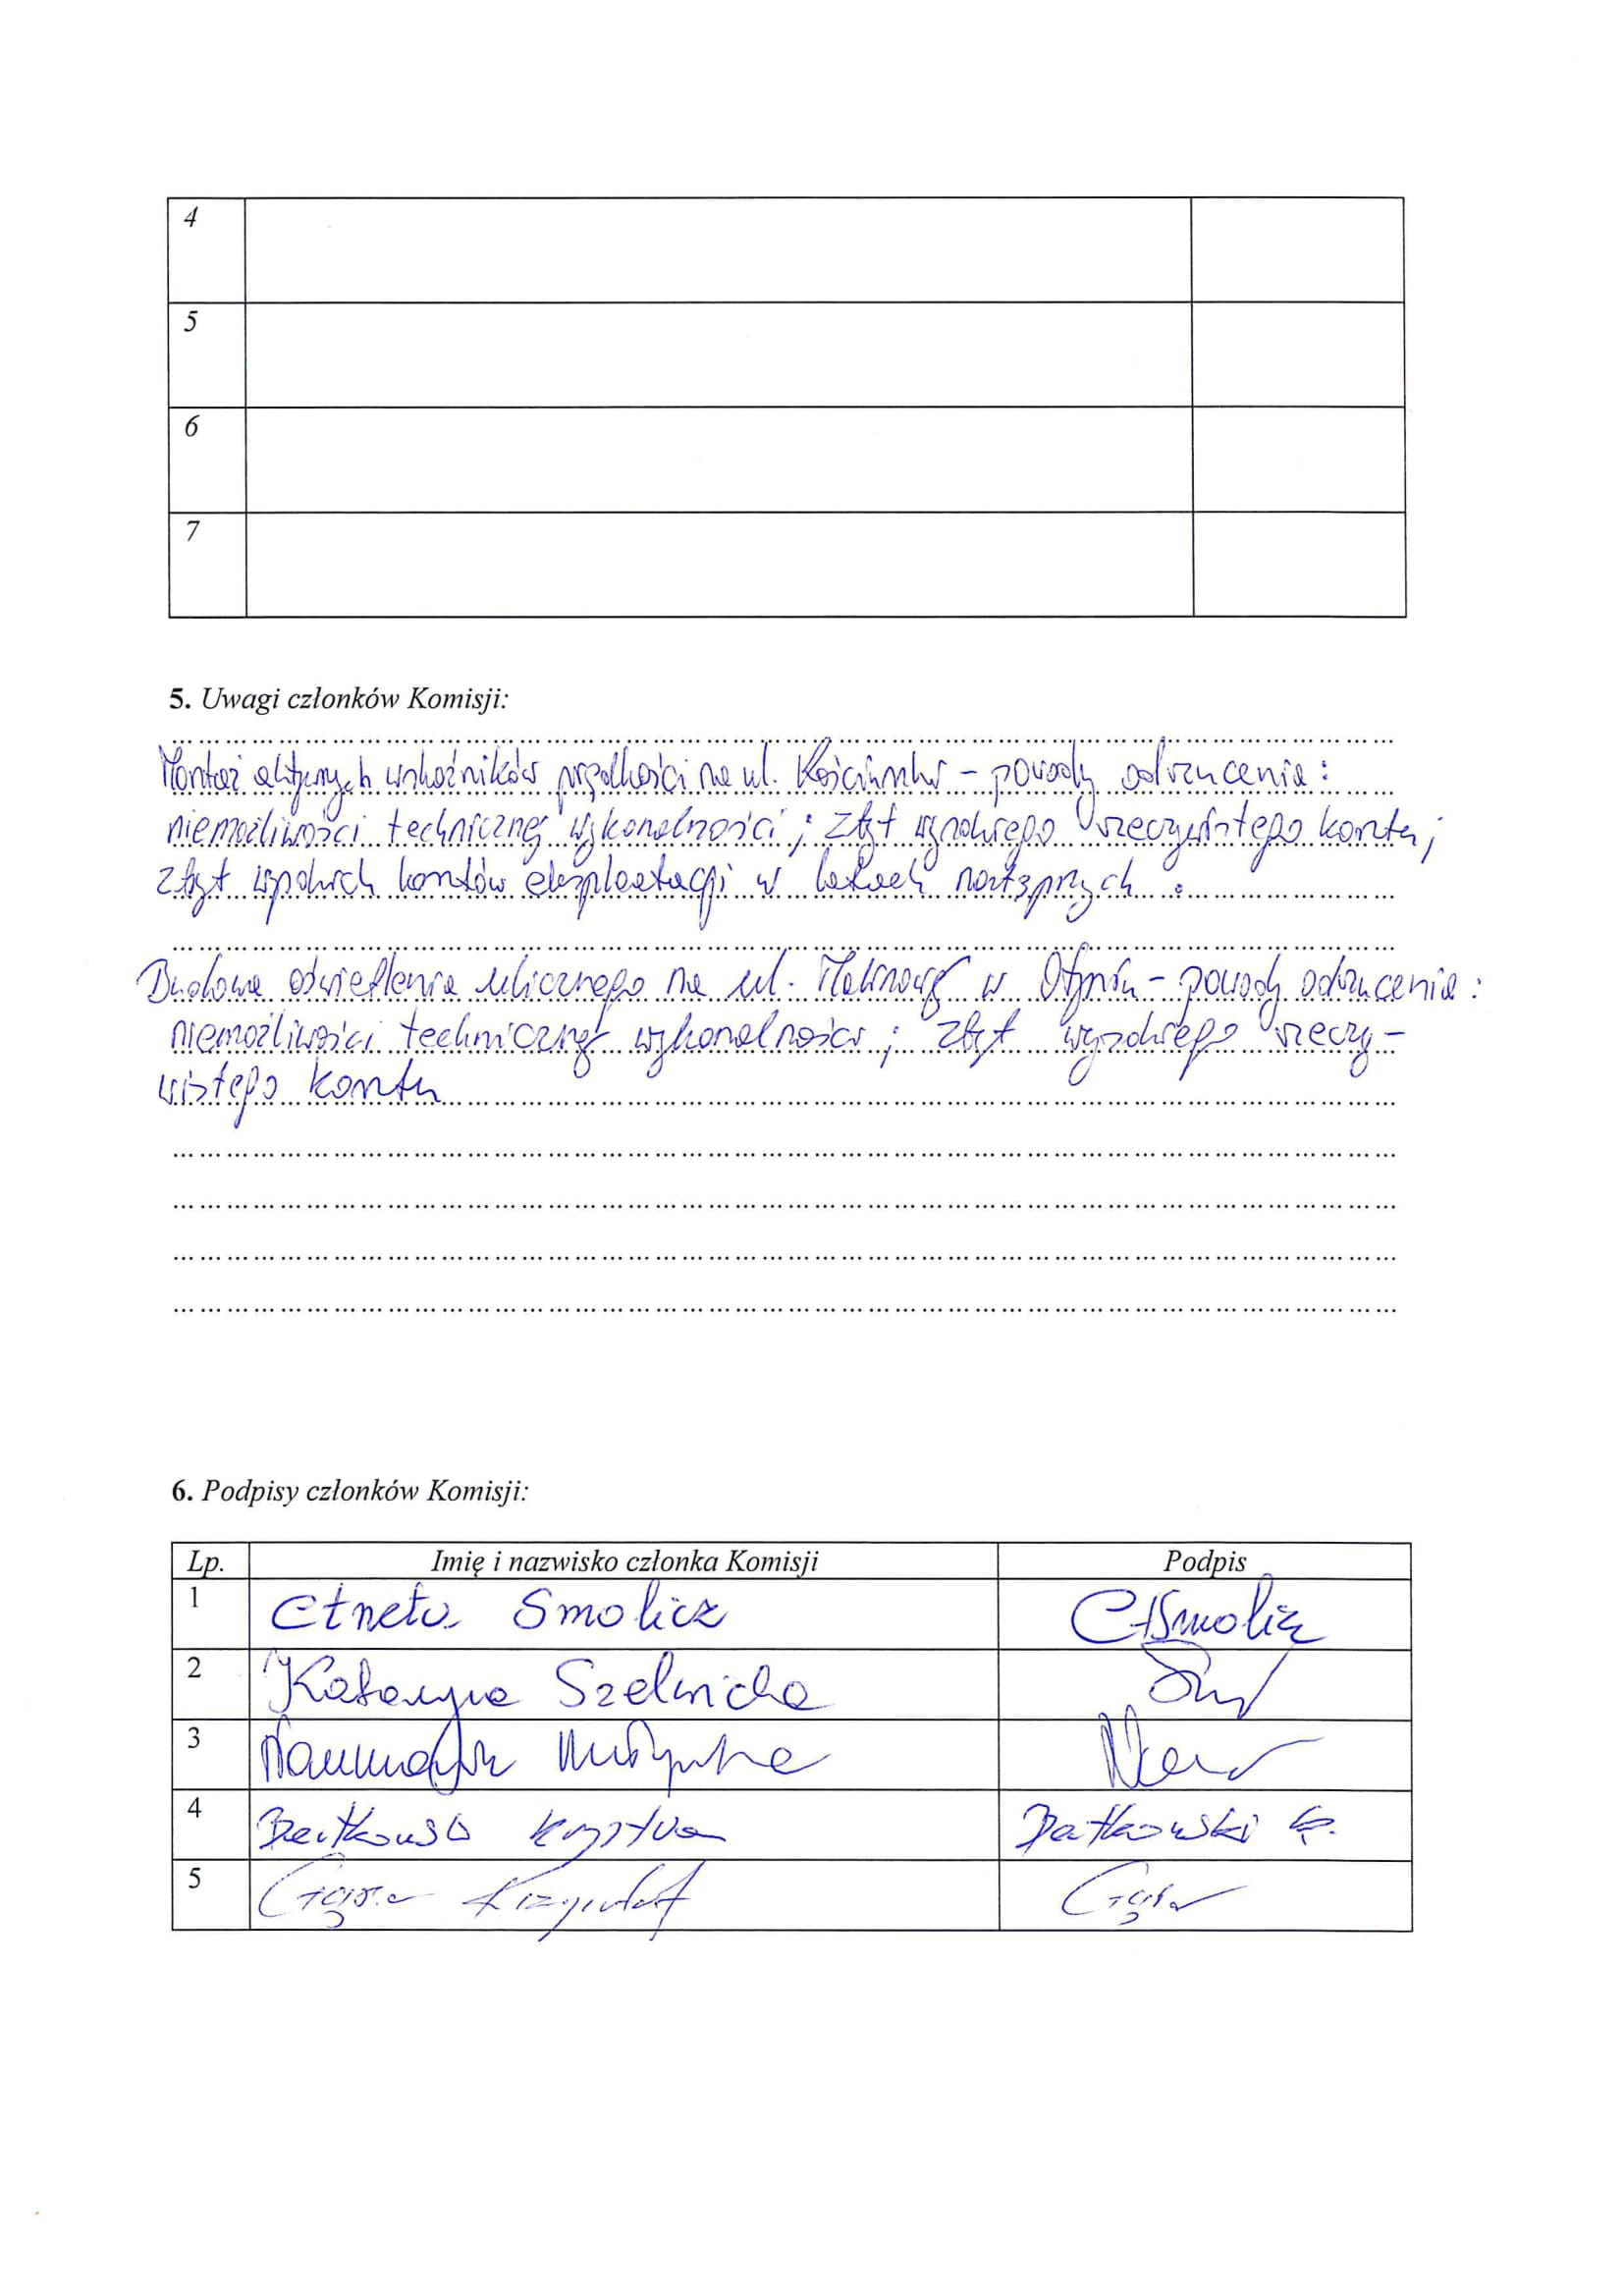 4
5
6
7
5. Uwagi członków Komisji:
Montaż aktywnych wskaźników prędkości na ul. Kościuszki - powody odrzucenia:
niemożliwości technicznej wykonalności; zbyt wysokiego rzeczywistego kosztu;
zbyt wysokich kosztów eksploatacji w latach następnych.
Budowa oświetlenia ulicznego na ul. Malinowej w Otyniu - powody odrzucenia:
niemożliwości technicznej wykonalności; zbyt wysokiego rzeczy-
wistego kosztu
6. Podpisy członków Komisji:
Lp. Imię i nazwisko członka Komisji Podpis
1 Smolicz
2 Katarzyna
3
4 Krystian Batkowski K.
5 Krzysztof